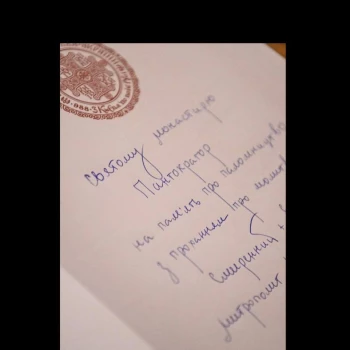 святому монастирю
Пантократор
на пам'ять про паломництво
з проханням про молитв
Смиренний +
митрополит